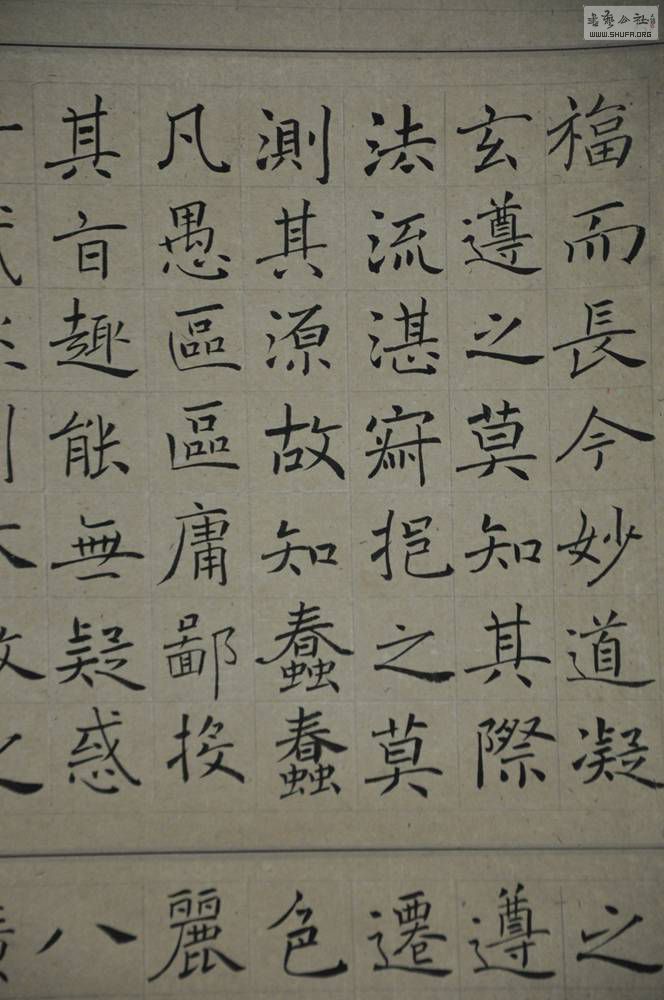 福而長今妙道凝
玄遵之莫知其際
法流湛寂挹之莫
測其源故知蠢蠢
凡愚區區庸鄙投
其旨趣能無疑惑
之
遵
遷
色
麗
八
書藝公社
WWW.SHUFA.ORG